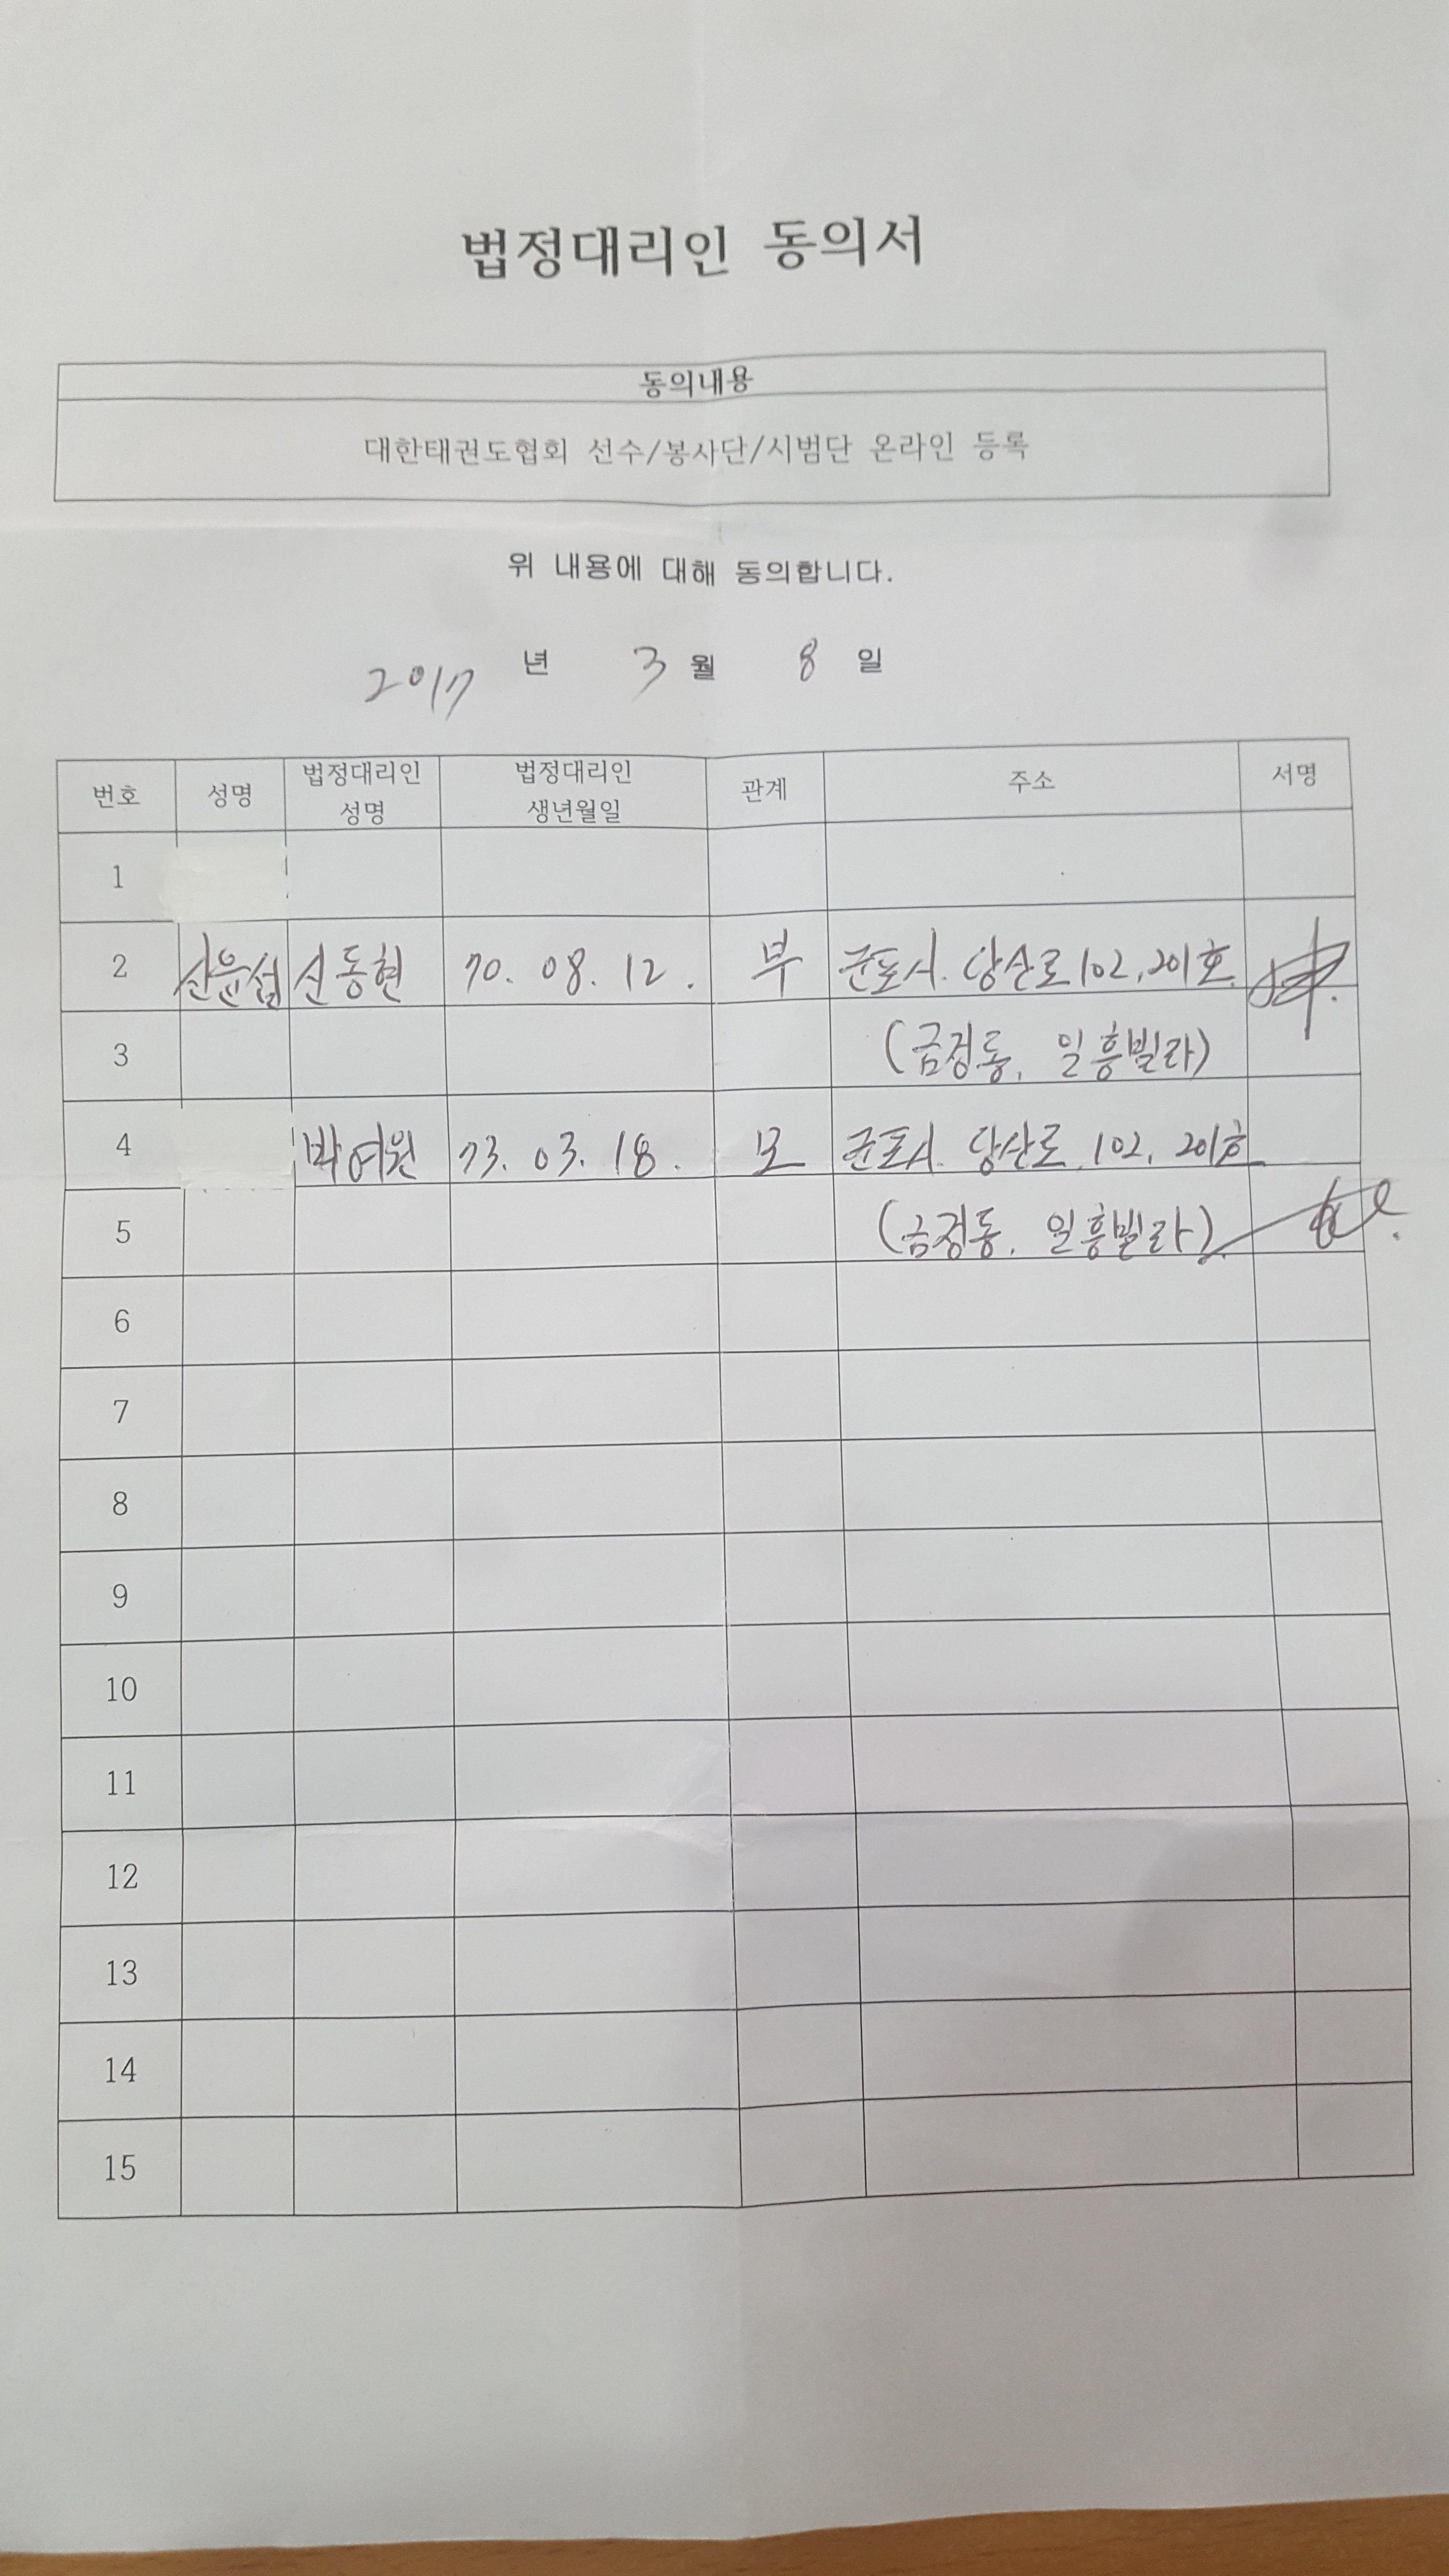 법정대리인 동의서
동의내용
대한태권도협회 선수/봉사단/시범단 온라인 등록
위 내용에 대해 동의합니다.
2017 년 3 월 8 일
번호 성명 법정대리인 성명 법정대리인 생년월일 관계 주소 서명
1
2 신윤섭 신동현 70. 08. 12. 부 군포시. 당산로 102, 201호.
3 (금정동, 일흥빌라)
4 박여원 73. 03. 18. 모 군포시. 당산로. 102, 201호
5 (금정동, 일흥빌라).
6
7
8
9
10
11
12
13
14
15